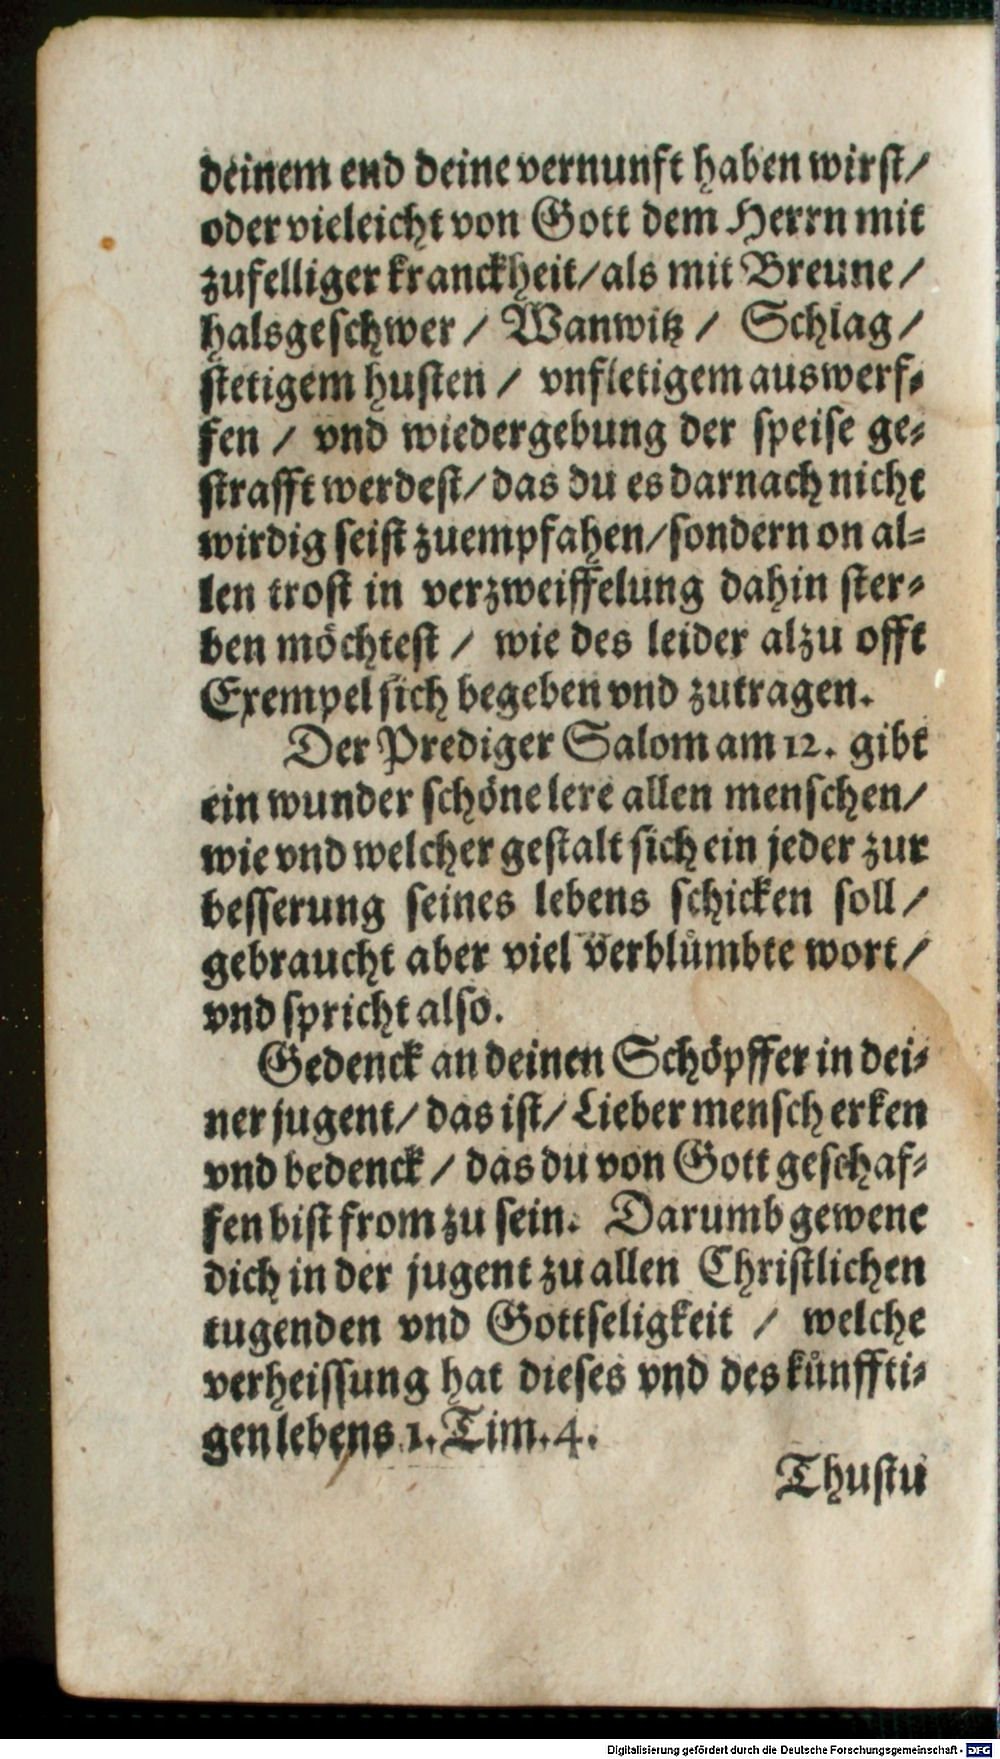 deinem end deine vernunft haben wirst/
oder vieleicht von Gott dem Herrn mit
zufelliger kranckheit/als mit Breune/
halsgeschwer / Wanwitz / Schlag/
stetigem husten / vnfletigem auswerf⸗
fen / vnd wiedergebung der speise ge⸗
strafft werdest/das du es darnach nicht
wirdig seist zuempfahen/sondern on al⸗
len trost in verzweiffelung dahin ster⸗
ben möchtest / wie des leider alzu offt
Exempel sich begeben vnd zutragen.
Der Prediger Salom am 12. gibt
ein wunder schöne lere allen menschen/
wie vnd welcher gestalt sich ein jeder zur
besserung seines lebens schicken soll/
gebraucht aber viel verblümbte wort/
vnd spricht also.
Gedenck an deinen Schöpffer in dei⸗
ner jugent/das ist/Lieber mensch erken
vnd bedenck/das du von Gott geschaf⸗
fen bist from zu sein. Darumb gewene
dich in der jugent zu allen Christlichen
tugenden vnd Gottseligkeit / welche
verheissung hat dieses vnd des künffti⸗
gen lebens 1. Tim. 4.
Thustu
Digitalisierung gefördert durch die Deutsche Forschungsgemeinschaft - DFG